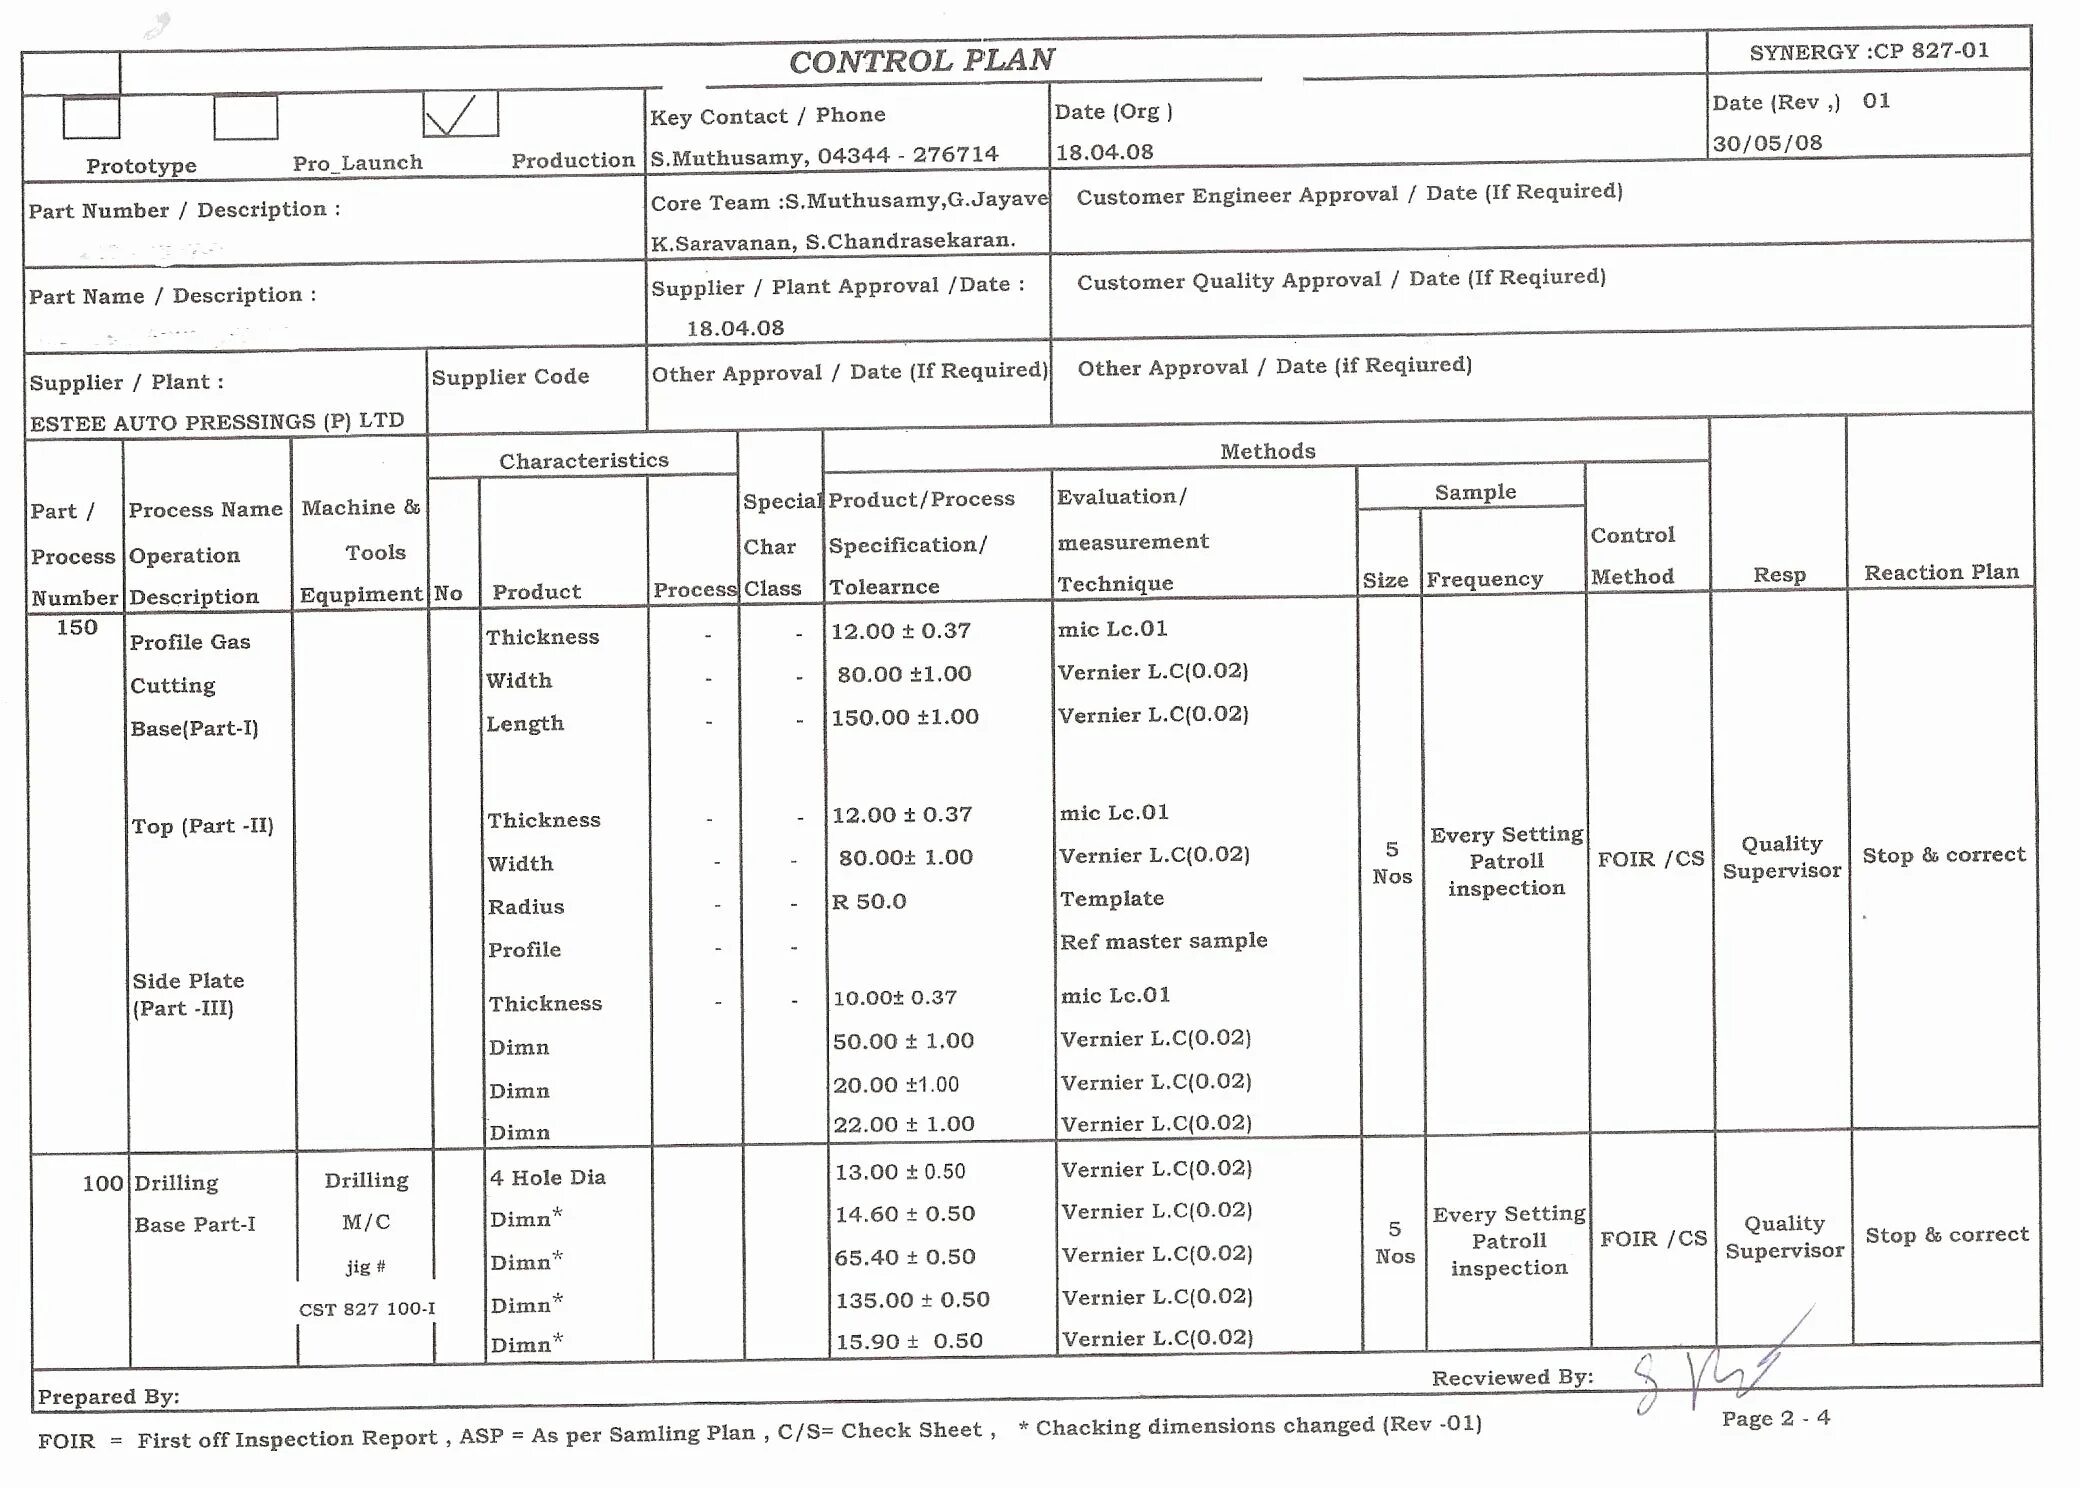 CONTROL PLAN
SYNERGY :CP 827-01
Prototype Pro_Launch Production
Key Contact / Phone
S.Muthusamy, 04344 - 276714
Date (Org )
18.04.08
Date (Rev ,) 01
30/05/08
Part Number / Description :
Core Team :S.Muthusamy,G.Jayave
K.Saravanan, S.Chandrasekaran.
Customer Engineer Approval / Date (If Required)
Part Name / Description :
Supplier / Plant Approval /Date :
18.04.08
Customer Quality Approval / Date (If Reqiured)
Supplier / Plant :
ESTEE AUTO PRESSINGS (P) LTD
Supplier Code
Other Approval / Date (If Required)
Other Approval / Date (if Reqiured)
Part /
Process
Number
Process Name
Operation
Description
Machine &
Tools
Equpiment
Characteristics
No
Product
Process
Special
Char
Class
Methods
Product/Process
Specification/
Tolearnce
Evaluation/
measurement
Technique
Sample
Size
Frequency
Control
Method
Resp
Reaction Plan
150
Profile Gas
Cutting
Base(Part-I)
Thickness - - 12.00 ± 0.37 mic Lc.01
Width - - 80.00 ±1.00 Vernier L.C(0.02)
Length - - 150.00 ±1.00 Vernier L.C(0.02)
Top (Part -II)
Thickness - - 12.00 ± 0.37 mic Lc.01
Width - - 80.00± 1.00 Vernier L.C(0.02)
Radius - - R 50.0 Template
Profile - - Ref master sample
Side Plate
(Part -III)
Thickness - - 10.00± 0.37 mic Lc.01
Dimn 50.00 ± 1.00 Vernier L.C(0.02)
Dimn 20.00 ±1.00 Vernier L.C(0.02)
Dimn 22.00 ± 1.00 Vernier L.C(0.02)
5
Nos
Every Setting
Patroll
inspection
FOIR /CS
Quality
Supervisor
Stop & correct
100
Drilling
Base Part-I
Drilling
M/C
jig #
CST 827 100-I
4 Hole Dia 13.00 ± 0.50 Vernier L.C(0.02)
Dimn* 14.60 ± 0.50 Vernier L.C(0.02)
Dimn* 65.40 ± 0.50 Vernier L.C(0.02)
Dimn* 135.00 ± 0.50 Vernier L.C(0.02)
Dimn* 15.90 ± 0.50 Vernier L.C(0.02)
5
Nos
Every Setting
Patroll
inspection
FOIR /CS
Quality
Supervisor
Stop & correct
Prepared By:
Recviewed By:
FOIR = First off Inspection Report , ASP = As per Samling Plan , C/S= Check Sheet , * Chacking dimensions changed (Rev -01)
Page 2 - 4